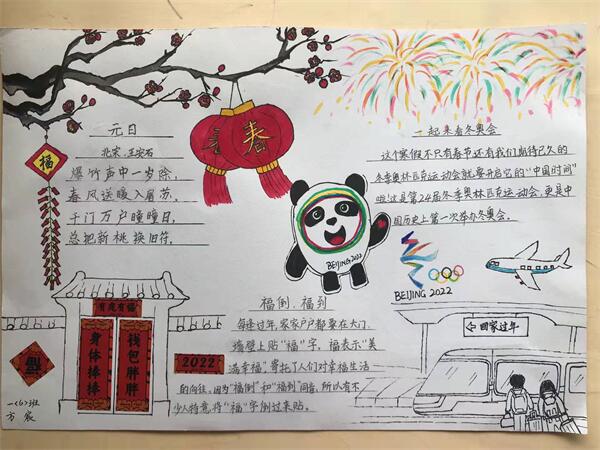 福
元日
北宋.王安石
爆竹声中一岁除,
春风送暖入屠苏,
千门万户曈曈日,
总把新桃换旧符,
春
一起来看冬奥会
这个寒假不只有春节还有我们期待已久的
冬季奥林匹克运动会就要开启它的"中国时间"
啦这是第24届冬季奥林匹克运动会,更是中
国历史上第一次举办冬奥会。
BEIJING 2022
BEIJING 2022
福倒、福到
每逢过年,家家户户都要在大门、
墙壁上贴"福"字,福表示"美
满幸福"寄托了人们对幸福生活
的向往,因为"福倒"和"福到"同音,所以有不
少人特意将"福"字倒过来贴。
2022
有虎有福
身体棒棒
钱包胖胖
福
回家过年
一(6)班
方宸